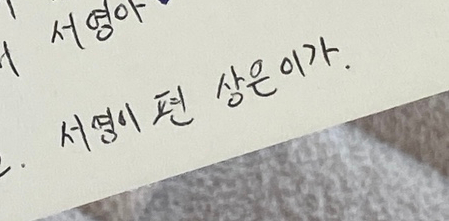 서영아
서영이 편 상은이가.